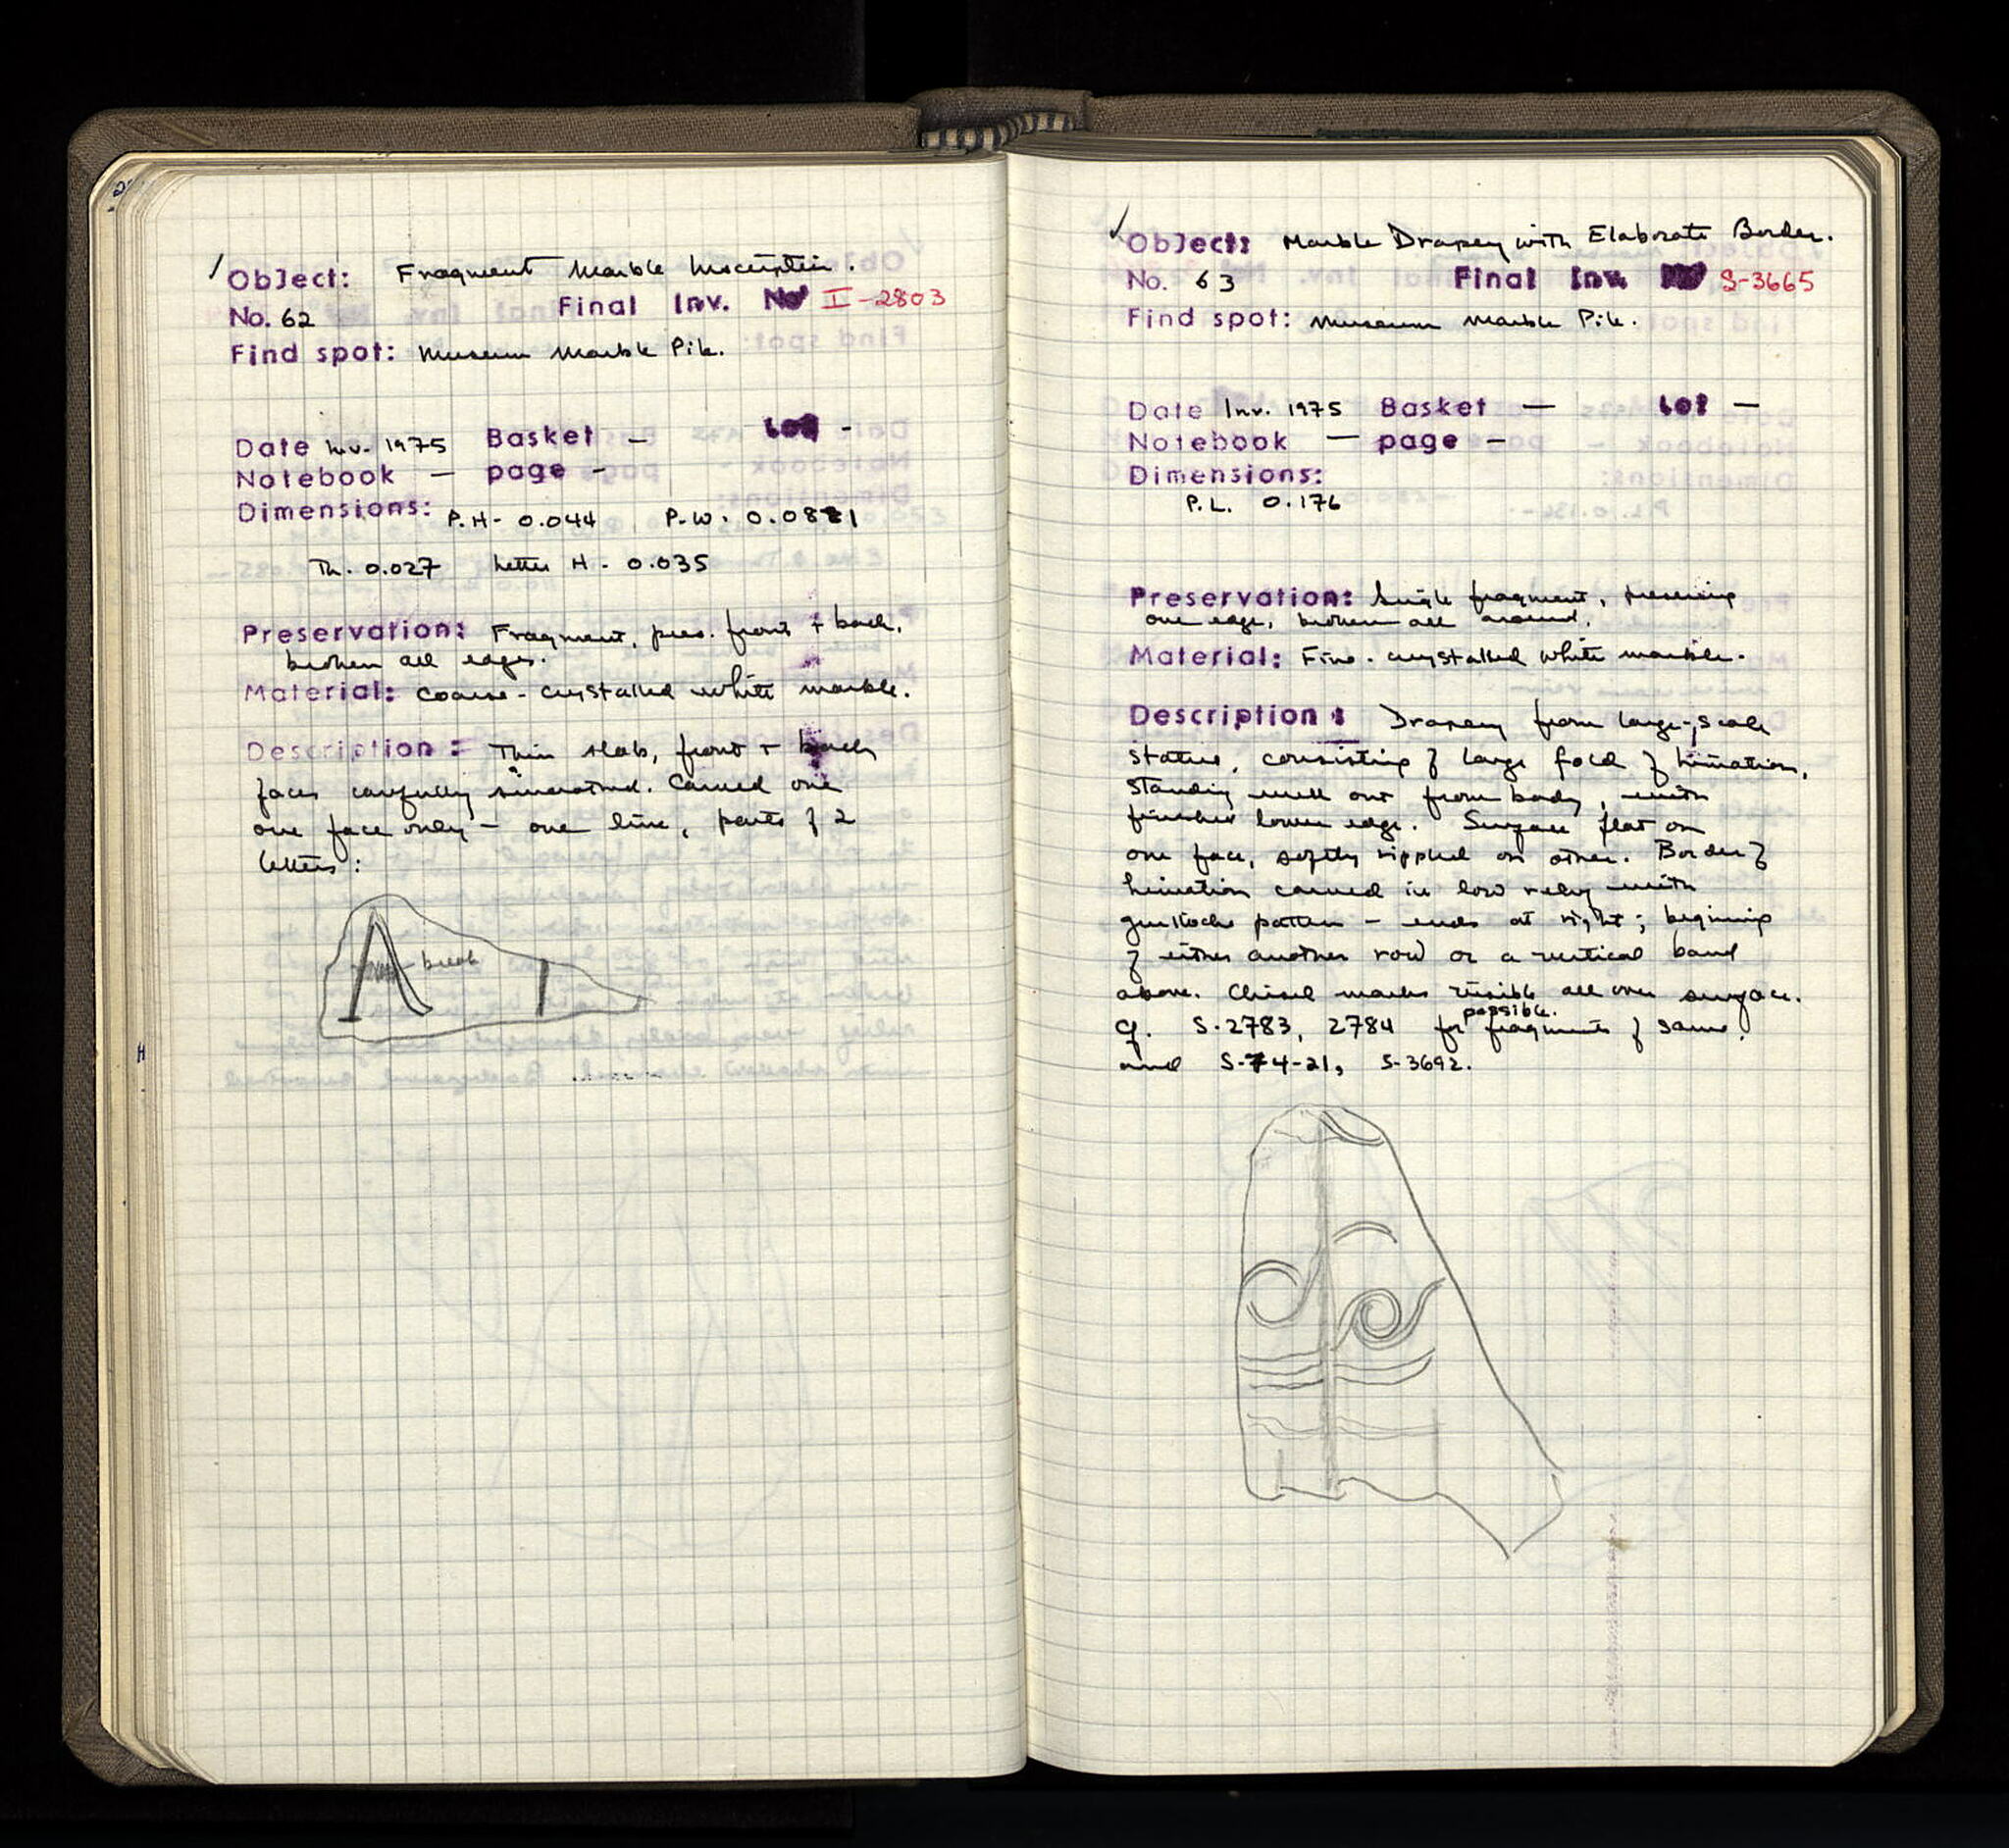 ✓ Object: Fragment Marble Inscription.
No. 62 Final Inv. No I-2803
Find spot: Museum Marble Pile.
Date Inv. 1975 Basket – Lot -
Notebook – page -
Dimensions: P.H- 0.044 P.W. 0.0821
Th. 0.027 Letter H - 0.035
Preservation: Fragment, pres. front + back,
broken all edges.
Material: coarse-crystalled white marble.
Description: Thin slab, front + back
faces carefully smoothed. Carved one
one face only – one line, parts of 2
letters:
break
✓ Object: Marble Drapery with Elaborate Border.
No. 63 Final Inv. No S-3665
Find spot: Museum Marble Pile.
Date Inv. 1975 Basket — Lot —
Notebook — page –
Dimensions:
P.L. 0.176
Preservation: Single fragment, preserving
one edge, broken all around.
Material: Fine-crystalled white marble.
Description: Drapery from large-scale
statue, consisting of large fold of himation,
standing well out from body, with
finished lower edge. Surface flat on
one face, softly rippled on other. Border of
himation carved in low relief with
guilloche pattern – ends at right; beginning
of either another row or a vertical band
above. Chisel marks visible all over surface.
Cf. S-2783, 2784 for possible fragments of same,
and S-74-21, S-3692.